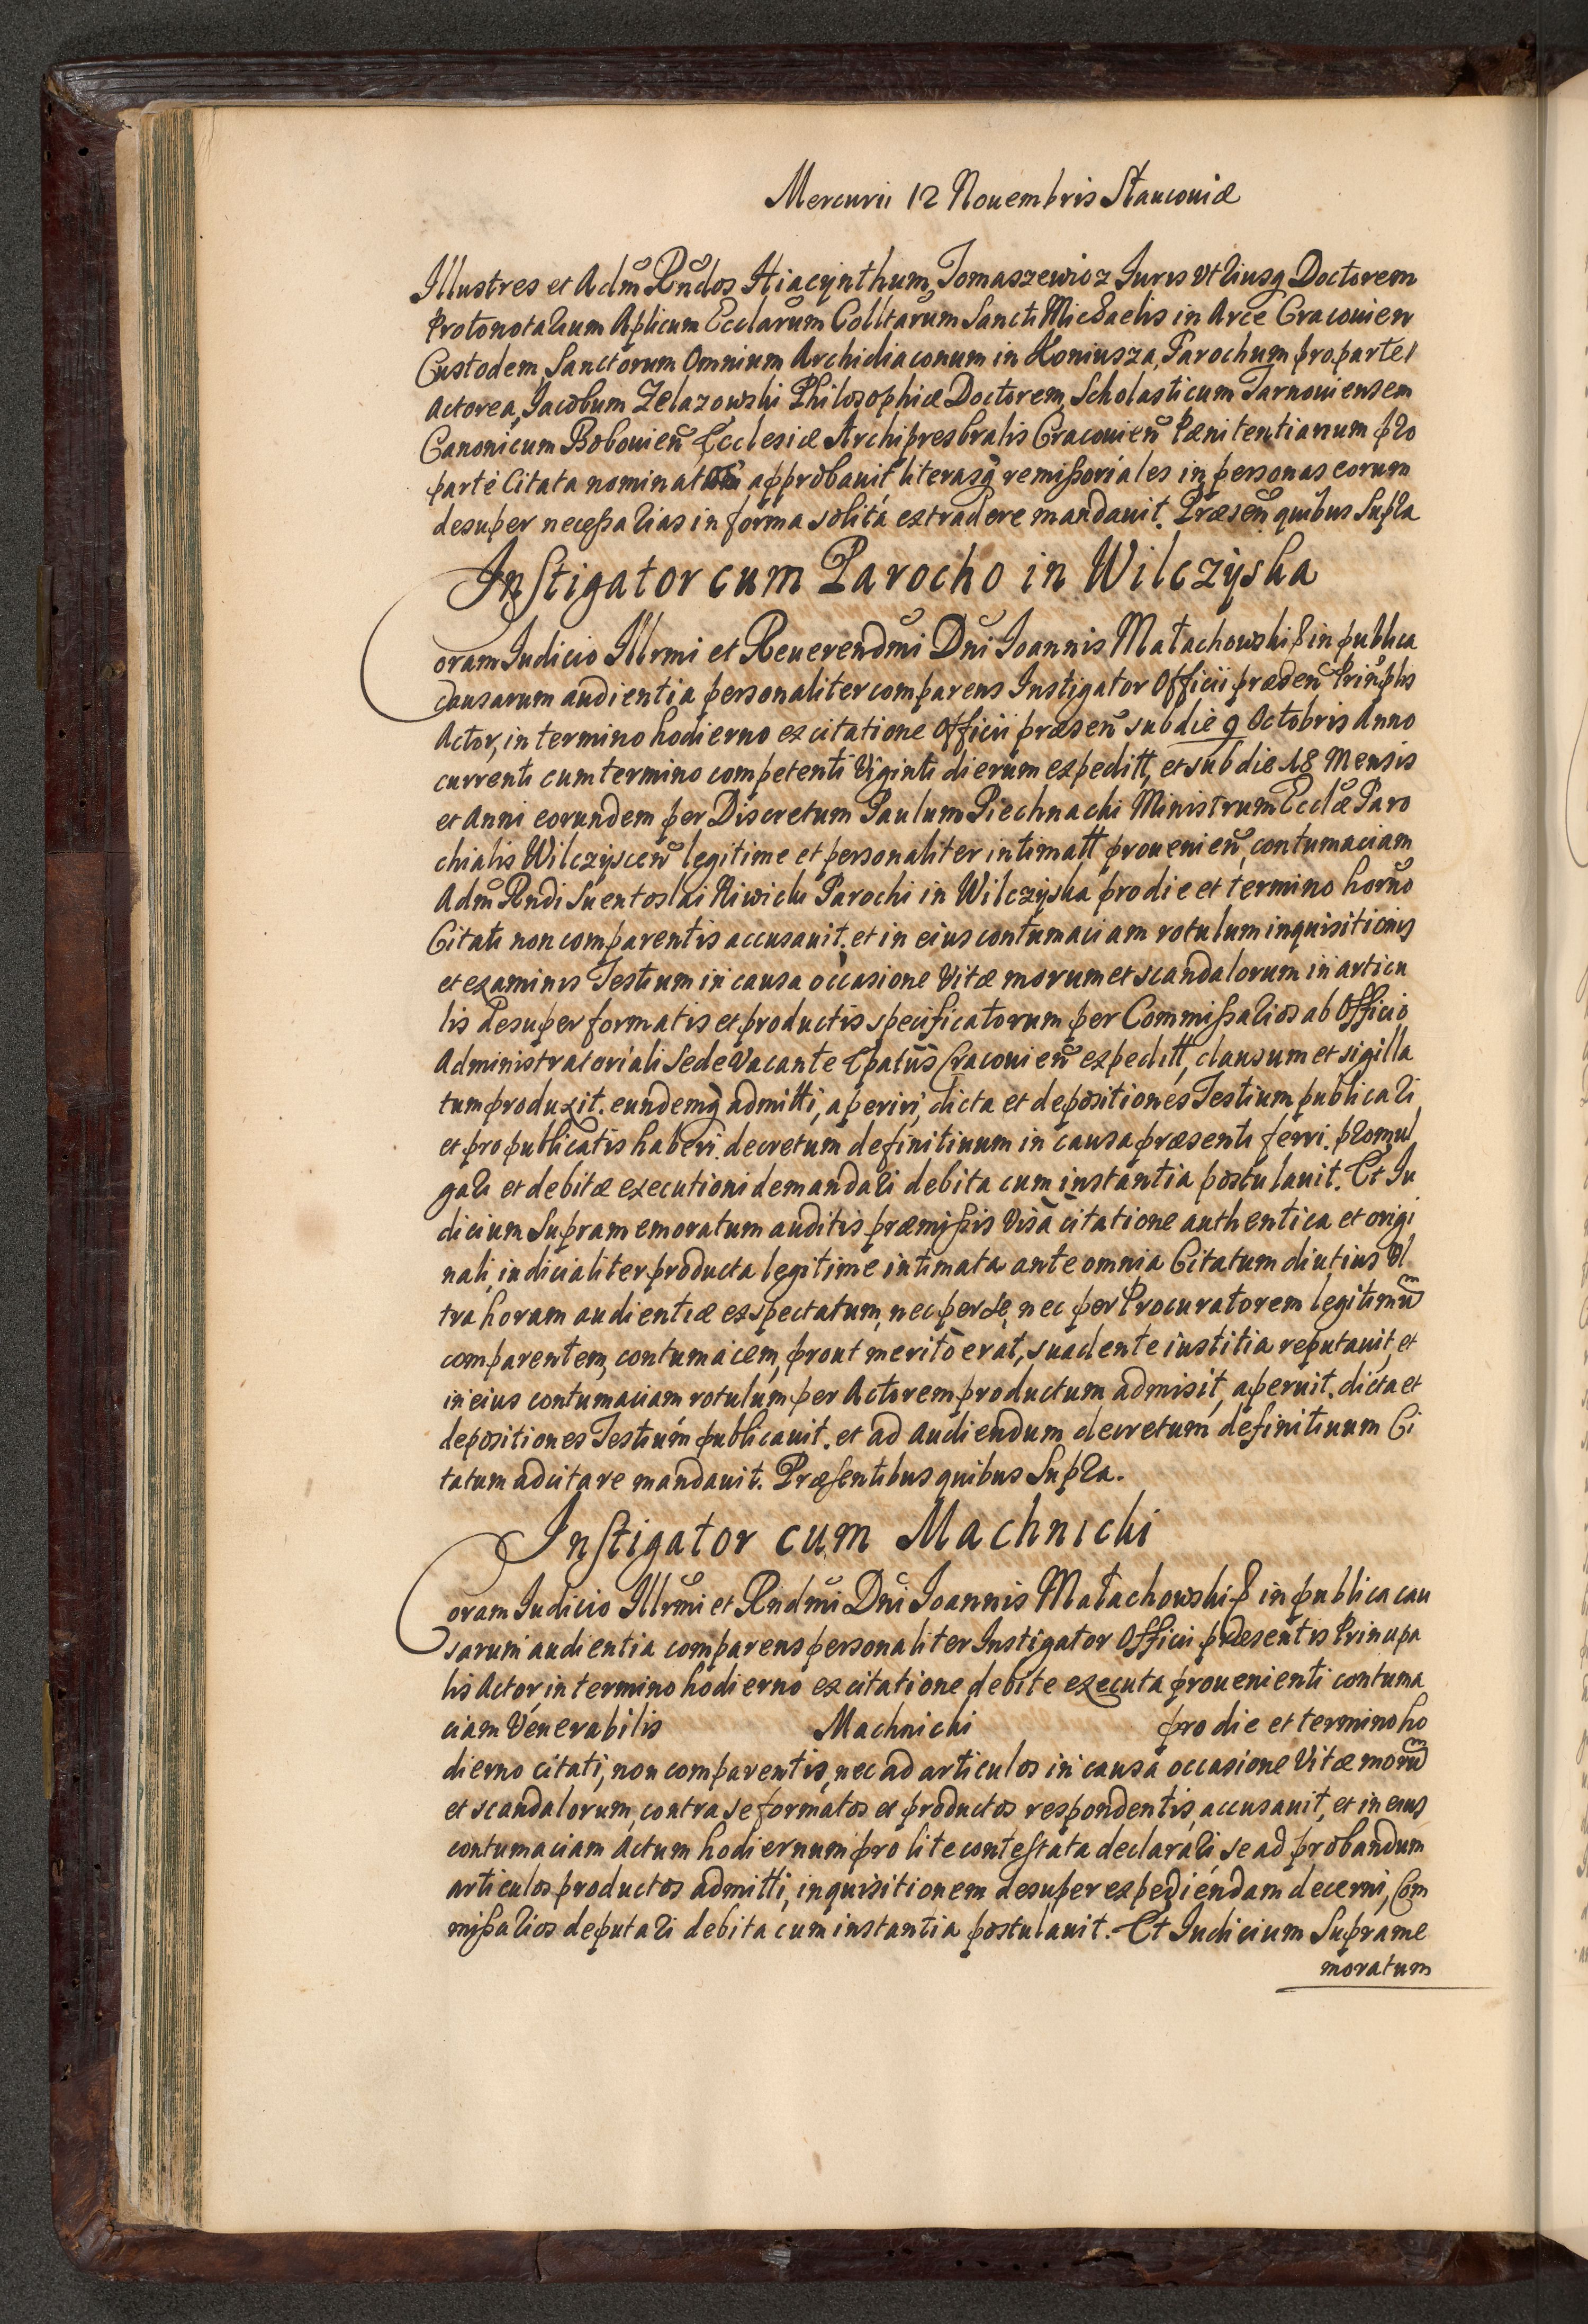 Mercurii 12 Nouembris Stauconiæ
Illustres et Adm Rndos Hiacÿnthum Tomaszewicz Iuris Vtriusq Doctorem
Protonotarium Aplicum Ecclarum Colltarum Sancti Michaelis in Arce Cracouien
Custodem, Sanctorum Omnium Archidiaconum in Koniusza, Parochum pro parte
Actorea, Jacobum Zelazowski Philosophiæ Doctorem, Scholasticum Tarnouiensem
Canonicum Bobouien Ecclesiæ Archipresbralis Cracouien Pænitentiarium pro
parte Citata nominatos approbauit literasq remissoriales in personas eorum
desuper necessarias in forma solita extradere mandauit. Præsen quibus Supra
Instigator cum Parocho in Wilczÿska
Coram Iudicio Illrmi et Reuerendmi Dni Ioannis Małachowski & in publica
causarum audientia personaliter comparens Instigator Officii præden Prinplis
Actor, in termino hodierno ex citatione Officii præsen sub die 9 Octobris Anno
currenti cum termino competenti Viginti dierum expeditt, et sub die 18 Mensis
et Anni eorundem per Discretum Paulum Piechnacki Ministrum Ecclæ Paro
chialis Wilczÿscen legitime et personaliter intimatt prouenien, contumaciam
Adm Rndi Suentoslai Niwicki Parochi in Wilczÿska pro die et termino horno
Citati non comparentis accusauit, et in eius contumaciam rotulum inquisitionis
et examinis Testium in causa occasione Vitæ morum et scandalorum in articu
lis desuper formatis et productis specificatorum per Commissarios ab Officio
Administratoriali Sede Vacante Epatus Cracouien expeditt, clausum et sigilla
tum produxit. eundemq admitti, aperiri, dicta et depositiones Testium publicari
et pro publicatis haberi. decretum definitiuum in causa præsenti ferri. promul
gari et debitæ executioni demandari debita cum instantia postulauit. Et Iu
dicium Supramemoratum auditis præmissis Visa citatione authentica et origi
nali, iudicialiter producta legitime intimata ante omnia Citatum diutius Vl
tra horam audientiæ expectatum, nec per se, nec per Procuratorem legitimum
comparentem, contumacem, prout merito erat, suadente iustitia reputauit, et
in eius contumaciam rotulum per Actorem productum admisit, aperuit. dicta et
depositiones Testium publicauit. et ad audiendum decretum definitiuum Ci
tatum adcitare mandauit. Præsentibus quibus Supra.
Instigator cum Machnicki
Coram Iudicio Illrmi et Rndmi Dni Ioannis Małachowski & in publica cau
sarum audientia comparens personaliter Instigator Officii præsentis Principa
lis Actor, in termino hodierno ex citatione debite executa prouenienti contuma
ciam Venerabilis Machnicki pro die et termino ho
dierno citati, non comparentis, nec ad articulos in causa occasione Vitæ morum
et scandalorum, contra se formatos et productos respondentis, accusauit, et in eius
contumaciam Actum hodiernum pro lite contestata declarari, se ad probandum
articulos productos admitti, inquisitionem desuper expediendam decerni, Com
missarios deputari debita cum instantia postulauit. Et Iudicium Suprame
moratum